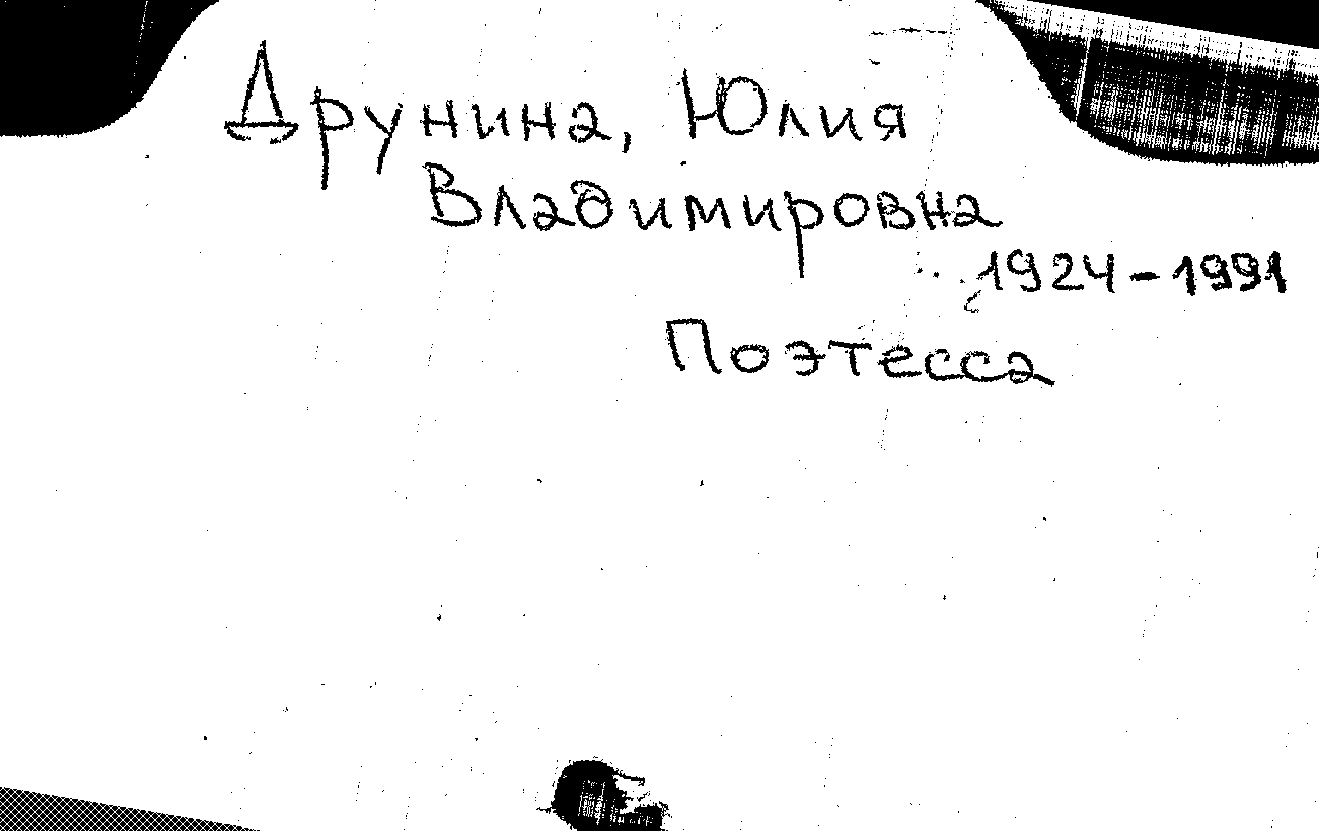 Друнина, Юлия
Владимировна
1924-1991
Поэтесса